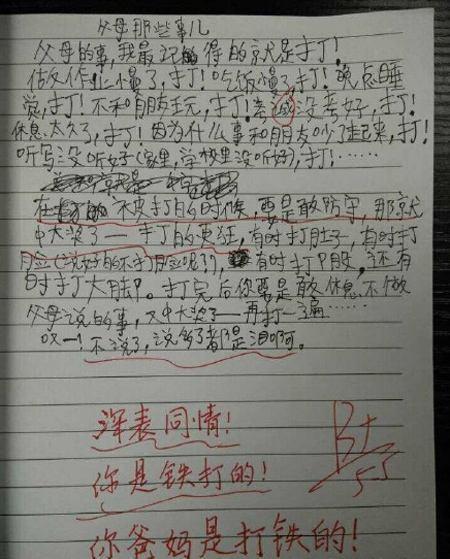 父母那些事儿
父母的事,我最记的得的就是打!
做作业慢了,打!吃饭慢了,打!晚点睡
觉,打!不和朋友玩,打!考试没考好,打!
休息太久了,打!因为什么事和朋友吵了起来,打!
听写没听好(家里,学校里没听好),打!……
在不使打的时候,要是敢防守,那就
中大奖了——打的更狂,有时打肚子,有时打
脸(说好的不打脸呢?!),有时打P股,还有
时打大腿。打完后你要是敢休息不做
父母说的事,又中大奖了——再打一遍……
哎——!不说了,说多了都是泪啊。
深表同情!
你是铁打的!
你爸妈是打铁的!
B+
5.3